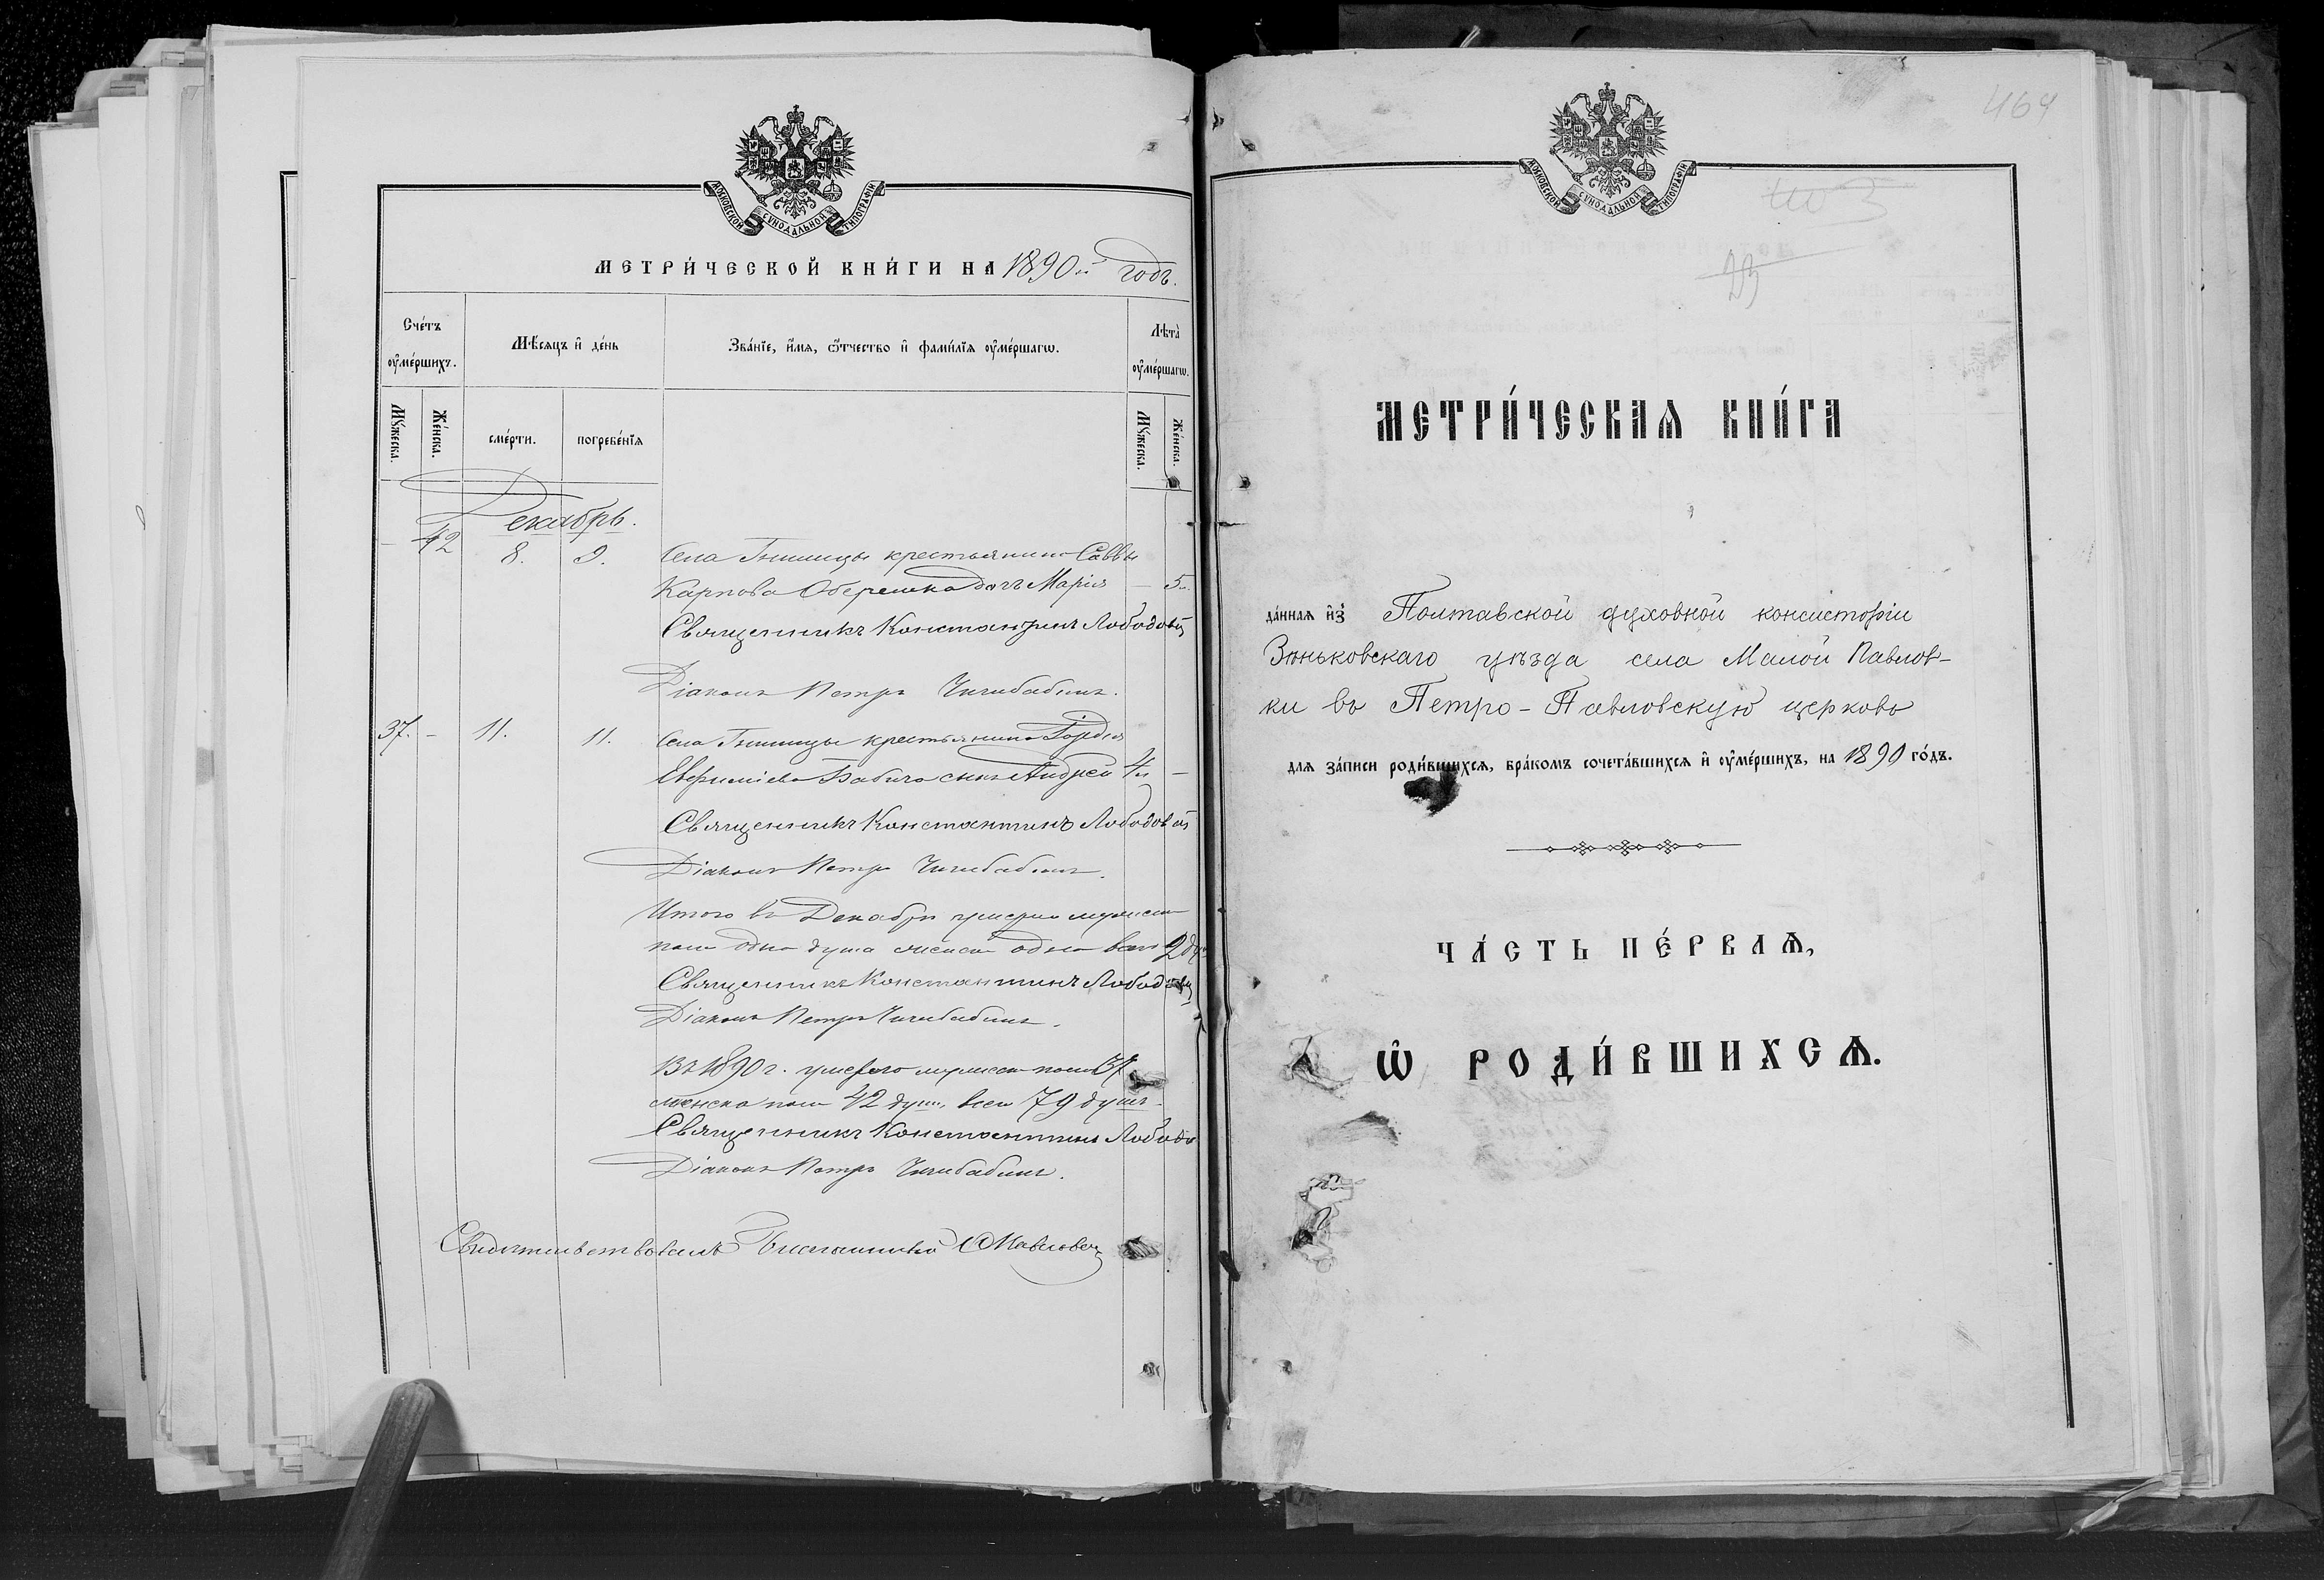 МОСКОВСКОЙ СѴНОДАЛЬНОЙ ТИПОГРАФІИ
МЕТРИ́ЧЕСКОЙ КНИ́ГИ НА 1890й годъ.
Сче́тъ оумéршихъ.
Мѣ́сяцъ и де́нь
Зва́нїе, и́мѧ, ѿтчество и фами́лїѧ оумéршагѡ.
Лѣта̀ оумéршагѡ.
Мꙋжеска.
Же́нска.
сме́рти.
погребе́нїѧ
Мꙋжеска.
Же́нска.
Декабрь.
— 42 8. 9. Села крестьянина Саввы
Карпова дочь Марія — 5
Священникъ Константинъ Лободовскій
Діаконъ Петръ Чичибабинъ.
37. — 11. 11. Села крестьянина Гордія
Евфиміева Бабича сынъ Андрей 4 —
Священникъ Константинъ Лободовскій
Діаконъ Петръ Чичибабинъ.
Итого въ Декабрѣ умерло мужеска
пола одна душа женска одна всего 2 душ
Священникъ Константинъ Лободовскій
Діаконъ Петръ Чичибабинъ.
Въ 1890 г. умерло мужеска пола 37
женска пола 42 душ, всего 79 душъ.
Священникъ Константинъ Лободо
Діаконъ Петръ Чичибабинъ.
Свидѣтельствовалъ Благочинный
464
МОСКОВСКОЙ СѴНОДАЛЬНОЙ ТИПОГРАФІИ
МЕТРИ́ЧЕСКАѦ КНИ́ГА
да́ннаѧ и́зъ Полтавской духовной консисторіи
Зѣньковскаго уѣзда села Малой Павлов-
ки въ Петро-Павловскую церковь
для за́писи роди́вшихсѧ, бра́комъ сочета́вшихсѧ и оумéршихъ, на 1890 го́дъ.
ЧА́СТЬ ПЕ́РВАѦ,
Ѡ РОДИ́ВШИХСѦ.